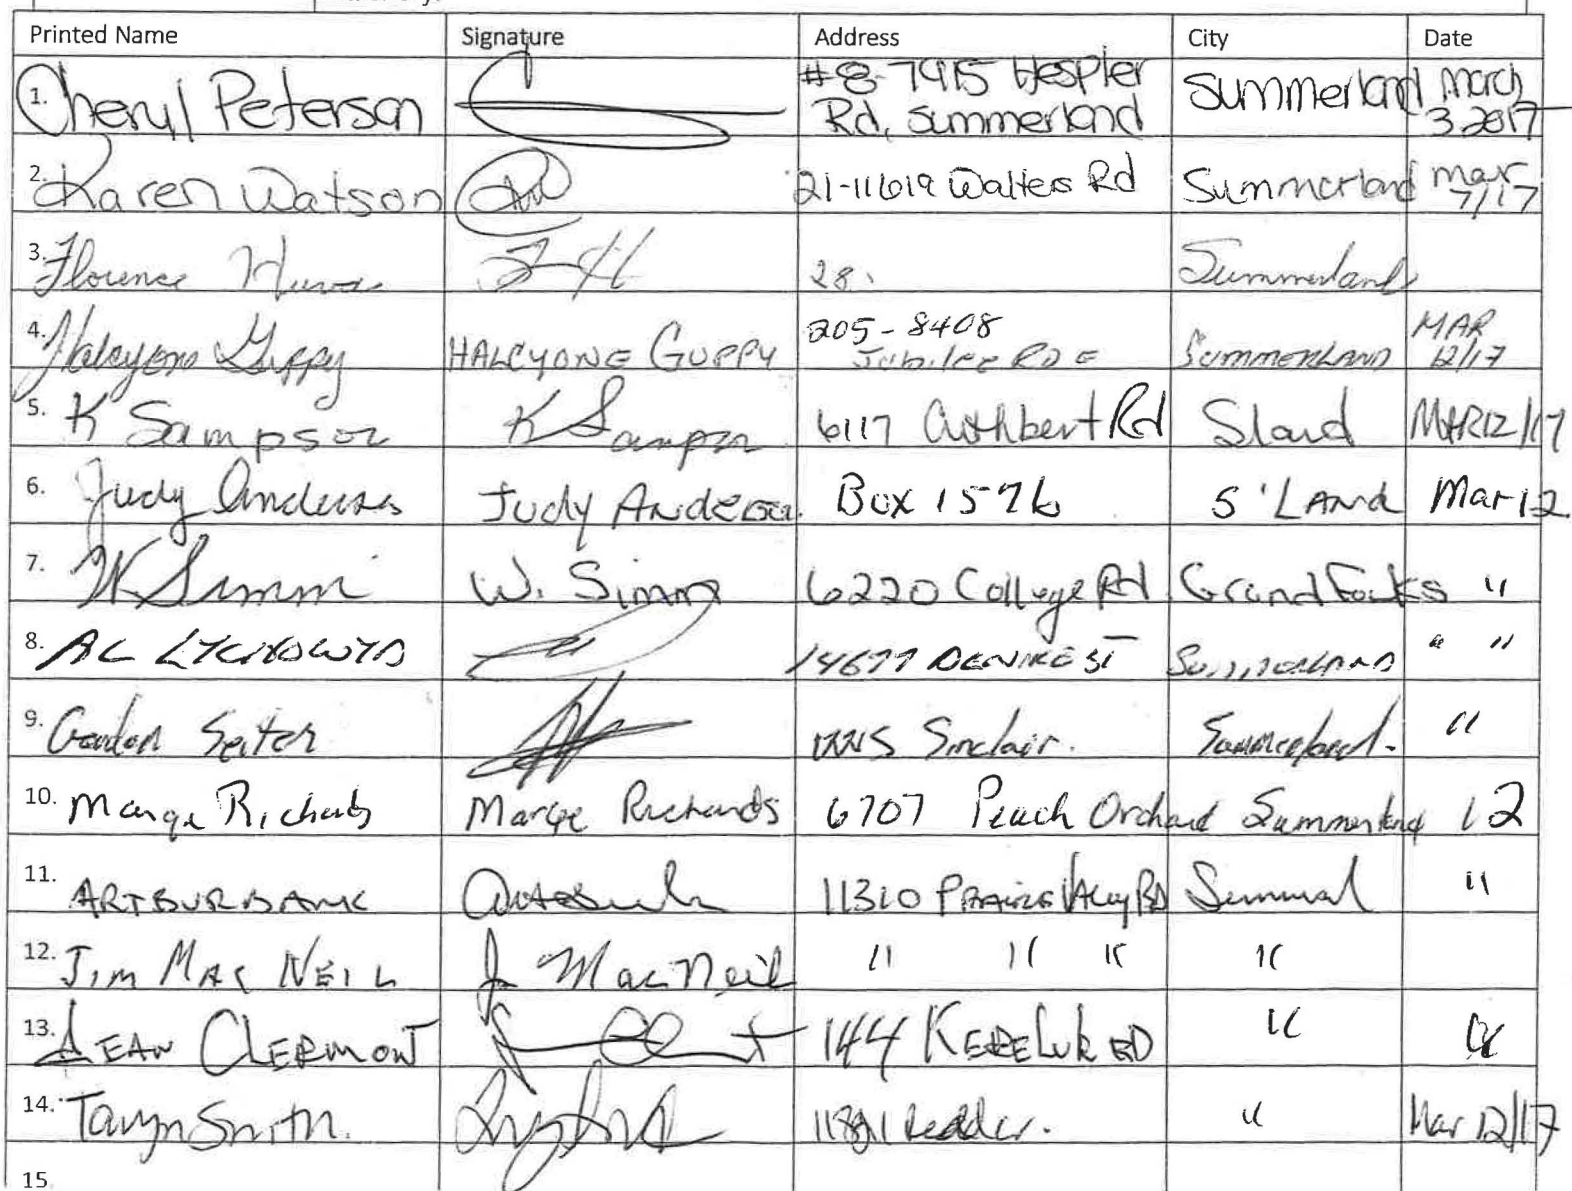 Printed Name Signature Address City Date
1. Cheryl Peterson #8-7915 Hespler Rd, Summerland Summerland March 3 2017
2. Karen Watson 21-11619 Walters Rd Summerland mar 7/17
3. Florence 28. Summerland
4. Halcyone Guppy HALCYONE GUPPY 205-8408 Jubilee RD E SUMMERLAND MAR 12/17
5. K Sampson K Sampson 6117 Cuthbert Rd Sland MAR12/17
6. Judy Anderson Judy Anderson Box 1576 S'LAND Mar 12
7. W Simm W. Simm 6220 College Rd Grand Forks "
8. AL 14677 DENIKE ST SUMMERLAND " "
9. Gordon Seiter Sinclair. Summerland. "
10. Marge Richards Marge Richards 6707 Peach Orchard Summerland 12
11. ART BURBANK 11310 PRAIRIE VALLEY RD Summerl "
12. JIM MAC NEIL J MacNeil " " " "
13. SEAN CLERMONT 144 KERELUK RD " "
14. Taryn Smith. " Mar 12/17
15.